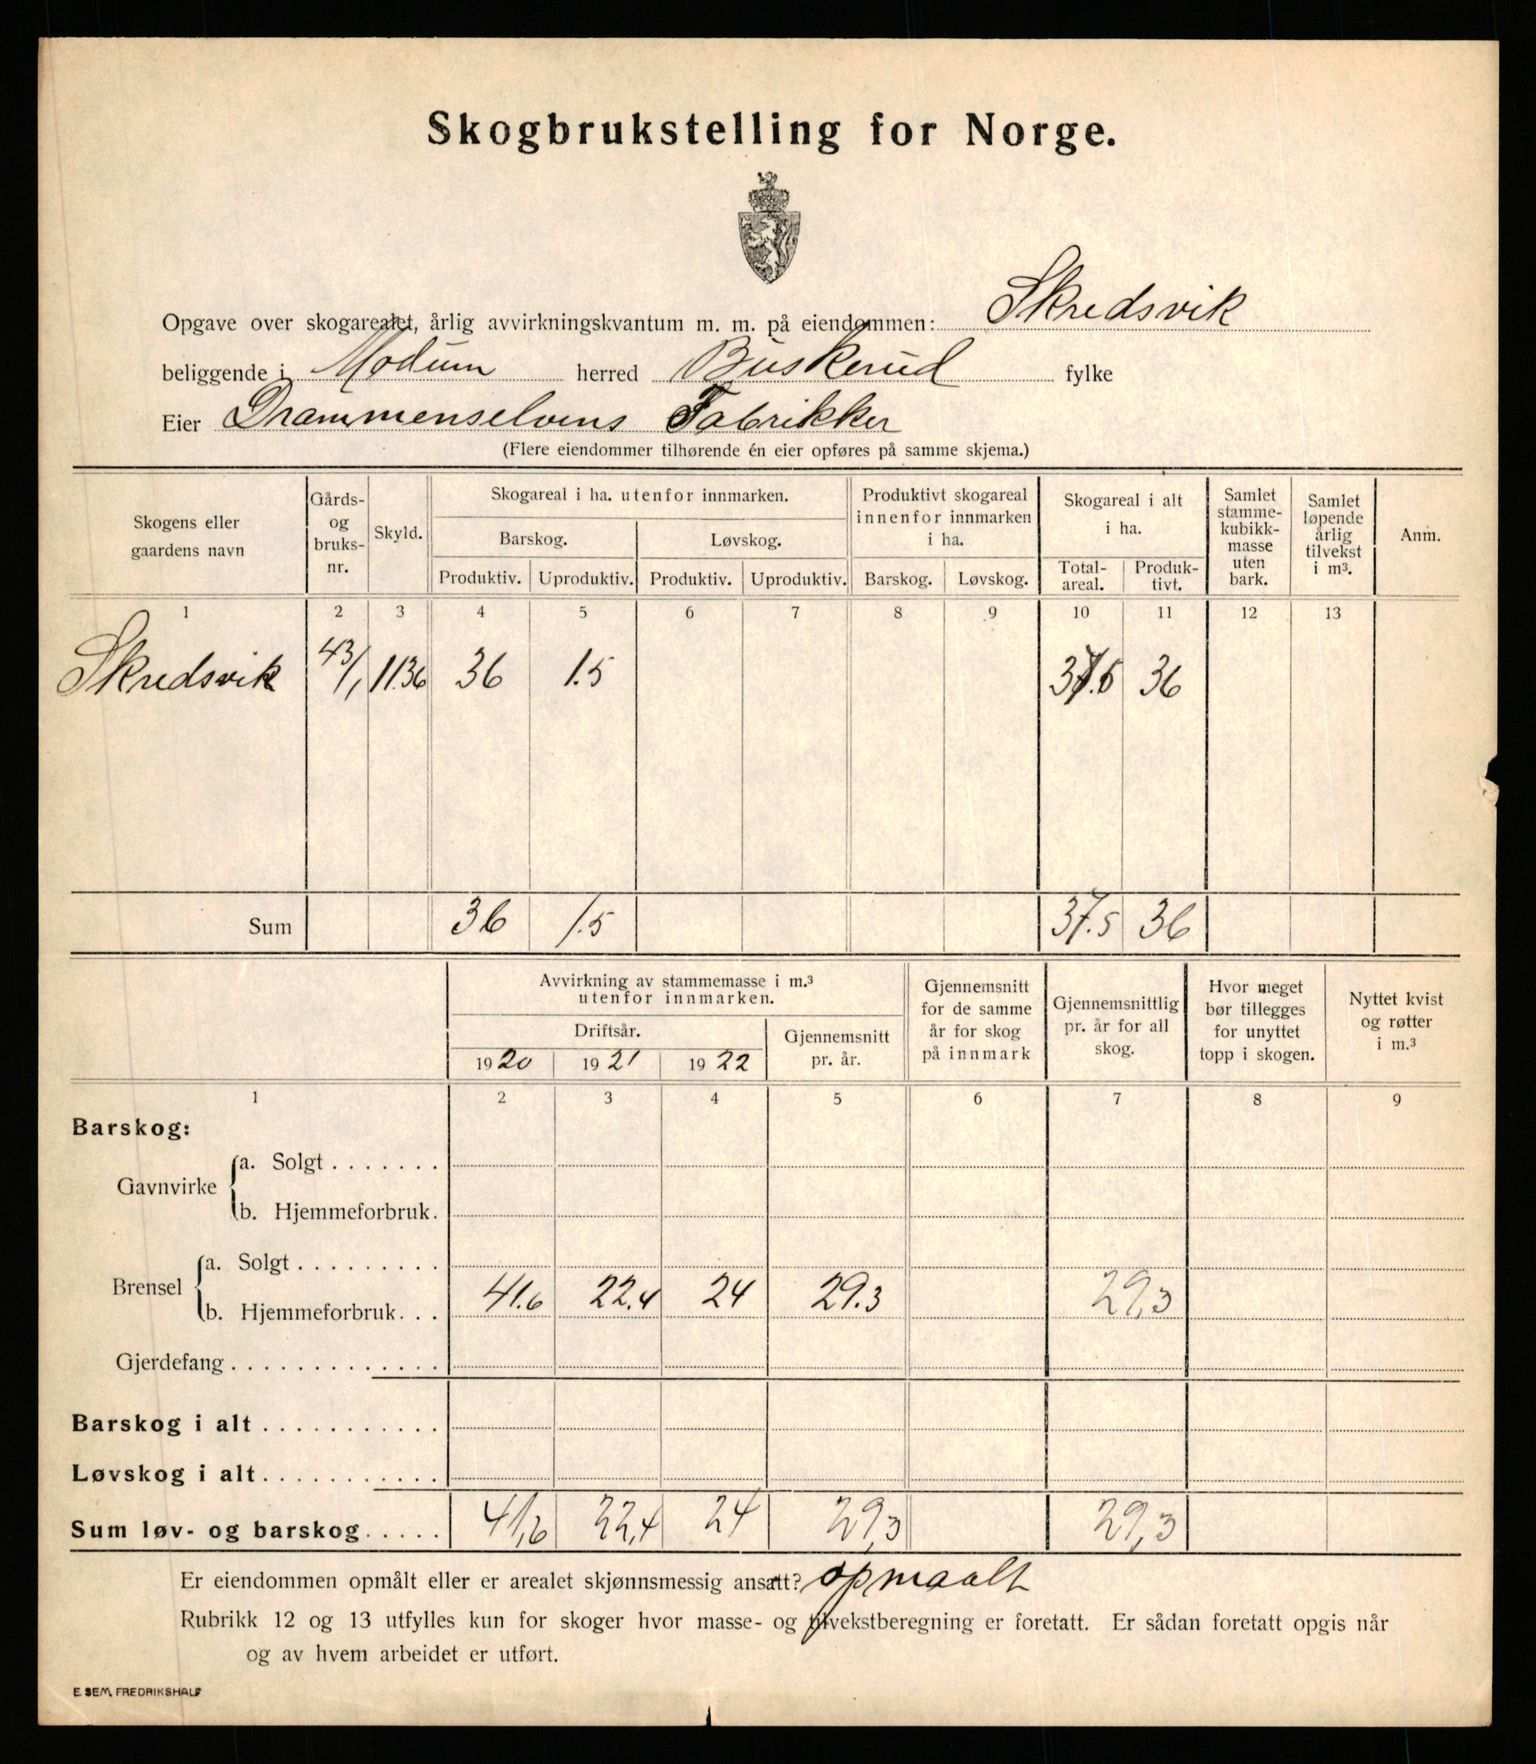 Skogbrukstelling for Norge.
Opgave over skogarealet, årlig avvirkningskvantum m. m. på eiendommen: Skredsvik
beliggende i Modum herred Buskerud fylke
Eier Drammenselvens Fabrikker
(Flere eiendommer tilhørende én eier opføres på samme skjema.)
Skogens eller gaardens navn
Gårds- og bruks- nr.
Skyld.
Skogareal i ha. utenfor innmarken.
Barskog.
Løvskog.
Produktiv. Uproduktiv. Produktiv. Uproduktiv.
Produktivt skogareal innenfor innmarken i ha.
Barskog. Løvskog.
Skogareal i alt i ha.
Total- areal.
Produk- tivt.
Samlet stamme- kubikk- masse uten bark.
Samlet løpende årlig tilvekst i m³.
Anm.
1 2 3 4 5 6 7 8 9 10 11 12 13
Skredsvik 43/1 11.36 36 1.5 37.5 36
Sum 36 1.5 37.5 36
Avvirkning av stammemasse i m.³ utenfor innmarken.
Driftsår.
1920 1921 1922
Gjennemsnitt pr. år.
Gjennemsnitt for de samme år for skog på innmark
Gjennemsnittlig pr. år for all skog.
Hvor meget bør tillegges for unyttet topp i skogen.
Nyttet kvist og røtter i m.³
1 2 3 4 5 6 7 8 9
Barskog:
Gavnvirke
a. Solgt . . . . . . .
b. Hjemmeforbruk.
Brensel
a. Solgt . . . . . . . . .
b. Hjemmeforbruk. . . 41.6 22.4 24 29.3 29,3
Gjerdefang . . . . . . . . . . . . .
Barskog i alt . . . . . . . . . . .
Løvskog i alt. . . . . . . . . . . .
Sum løv- og barskog. . . . . 41,6 22,4 24 29,3 29,3
Er eiendommen opmålt eller er arealet skjønnsmessig ansatt? opmaalt
Rubrikk 12 og 13 utfylles kun for skoger hvor masse- og tilvekstberegning er foretatt. Er sådan foretatt opgis når
og av hvem arbeidet er utført.
E. SEM, FREDRIKSHALD